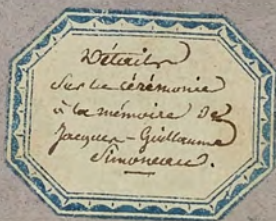 Détails
Sur la cérémonie
à la mémoire de
Jacques-Guillaume
Simoneau.